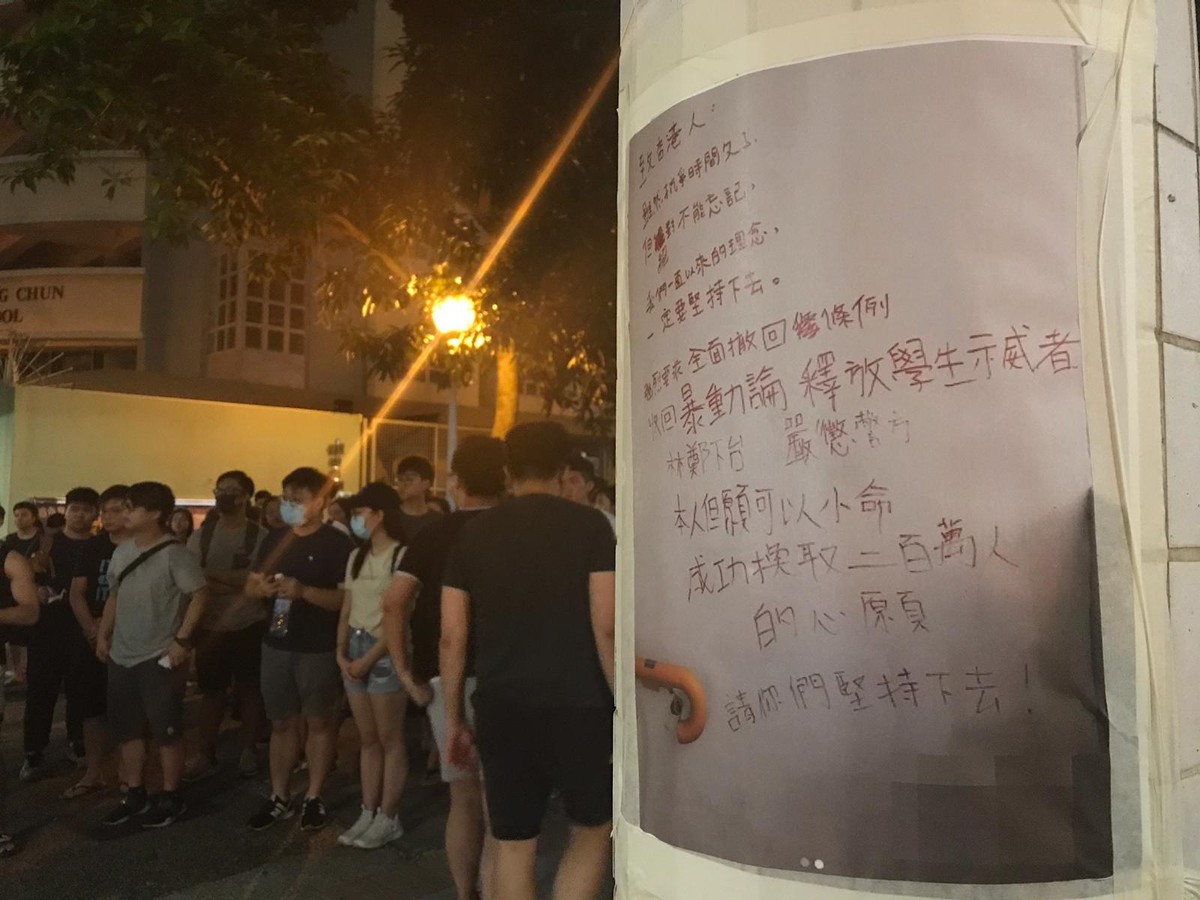 G CHUN
OL
致香港人：
雖然抗爭時間久了，
但絕對不能忘記，
我們一直以來的理念，
一定要堅持下去。
強烈要求全面撤回條例
收回暴動論 釋放學生示威者
林鄭下台 嚴懲警方
本人但願可以小命
成功換取二百萬人
的心願
請你們堅持下去！